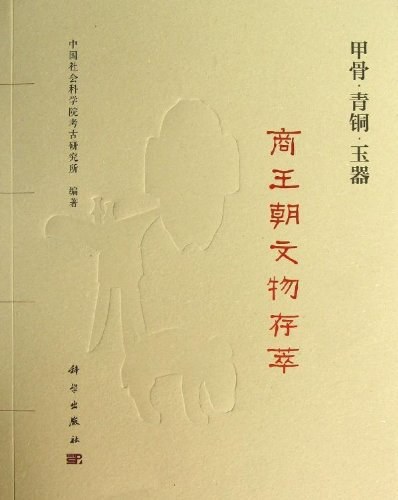 甲骨·青铜·玉器
商王朝文物存萃
中国社会科学院考古研究所 编著
科学出版社